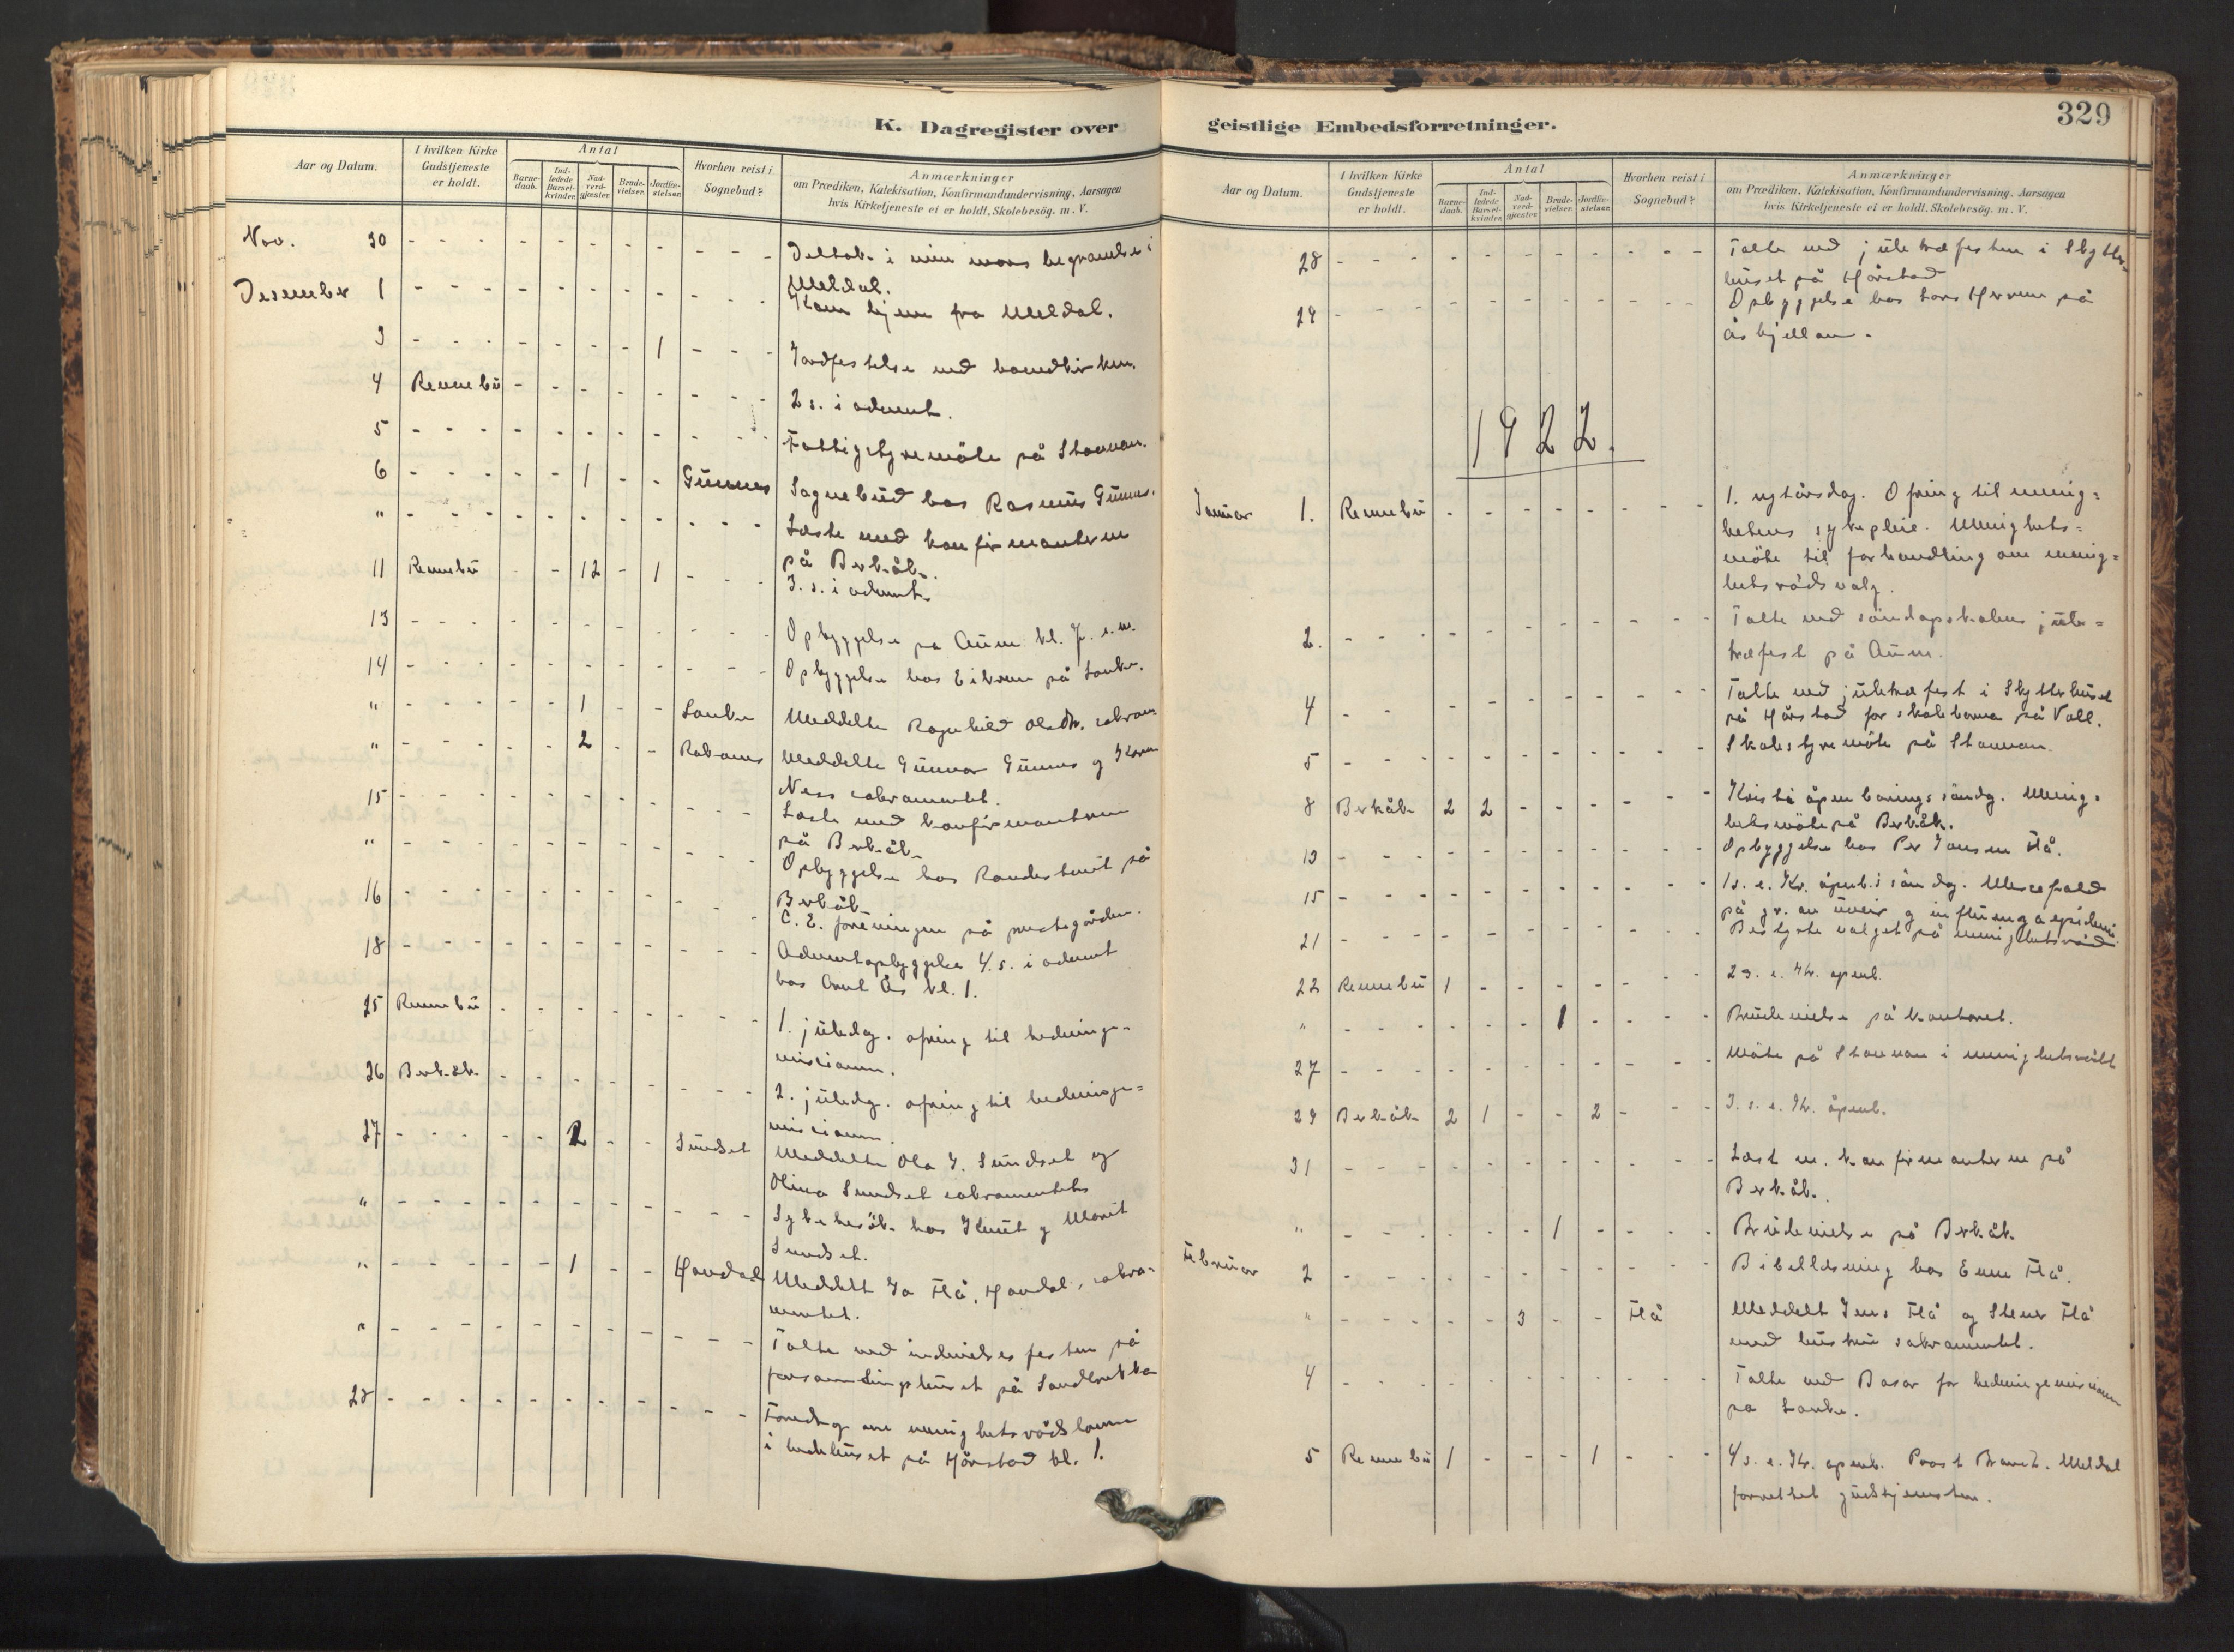 K. Dagregister over
Aar og Datum.
I hvilken Kirke Gudstjeneste er holdt.
Antal
Barne-daab.
Ind-ledede Barsel-kvinder.
Nad-verd-gjæster.
Brude-vielser.
Jordfæ-stelser.
Hvorhen reist i Sognebud?
Anmærkninger
om Prædiken, Katekisation, Konfirmandundervisning, Aarsagen
hvis Kirketjeneste ei er holdt, Skolebesög. m. V.
Nov. 30 Deltok i min mors begravelse i
Meldal.
Desember 1 Kom hjem fra Meldal.
3 1 Jordfestelse ved hovedkirken.
4 Rennebu 2 s. i advent.
5 Fattigstyremöte på Stavnan.
6 1 Gunnes Sognebud hos Rasmus Gunnes.
" Læste med konfirmantene
på Berkåk.
11 Rennebu 12 1 3. s. i advent.
13 Opbyggelse på Aune kl. 7 e.m.
14 Opbyggelse hos Eitrem på
" 1 Meddelte Ragnhild Olsdtr. sakram.
" 2 Meddelte Gunnar Gunnes og
Ness sakramentet.
15 Læste med konfirmantene
på Berkåk
" Opbyggelse hos på
Berkåk
16 C. E. foreningen på prestegården.
18 Adventopbyggelse 4. s. i advent
hos Ås kl. 1.
25 Rennebu 1. juledag. ofring til hedninge-
misionen.
26 Berkåk 2. juledg. ofring til hedninge=
misionen.
27 2 Sundset Meddelte Ola J. Sundset og
Olina Sundset sakramentet
" Sykebesök hos Knut og Marit
Sundset.
" 1 Havdal Meddelt Jo Flå, Havdal, sakra=
mentet.
" Talte ved indvielsesfesten på
forsamlingshuset på
28 Foredrag om menighetsrådsloven
i bedehuset på Hårstad kl. 1.
geistlige Embedsforretninger.
329
Aar og Datum.
I hvilken Kirke Gudstjeneste er holdt.
Antal
Barne-daab.
Ind-ledede Barsel-kvinder.
Nad-verd-gjæster.
Brude-vielser.
Jordfæ-stelser.
Hvorhen reist i Sognebud?
Anmærkninger
om Prædiken, Katekisation, Konfirmandundervisning, Aarsagen
hvis Kirketjeneste ei er holdt, Skolebesög. m. V.
28 Talte ved juletræfesten i Skytter=
huset på Hårstad
29 Opbyggelse hos Lars Herrem på
Åskjellan.
1922.
Januar 1. Rennebu 1. nytårsdag. Ofring til menig=
hetens sykepleie. Menighets=
möte til forhandling om menig=
hetsrådsvalg.
2. Talte ved söndagsskolens jule=
træfest på Aune.
4 Talte ved juletræfest i Skytterhuset
på Hårstad for skolebarna på Voll.
5 Skolestyremöte på Stavnan.
8 Berkåk 2 2 Kristi åpenbaringssöndg. Menig=
hetsmöte på Berkåk.
13 Opbyggelse hos Per Jonsen Flå.
15 1 s. e. Kr. åpenb. söndg. Messefald
på gr. av uveir og influenzaepidemi.
21 Bestyrte valget på menighetsråd
22 Rennebu 1 2 s. e. Kr. apenb.
" 1 Brudevielse på kontoret.
27 Möte på Stavnan i menighetsrådet
29 Berkåk 2 1 2 3. s. e. Kr. åpenb.
31 Læst m. konfirmantene på
Berkåk.
" 1 Brudevielse på Berkåk
Februar 2 Bibellæsning hos Enn Flå.
" 3 Flå Meddelt Jens Flå og Stener Flå
med hustru sakramentet.
4 Talte ved Basar for hedningemisionen
på
5 Rennebu 1 1 4 s. e. Kr. apenb. Prost Meldal
forrettet gudstjenesten.